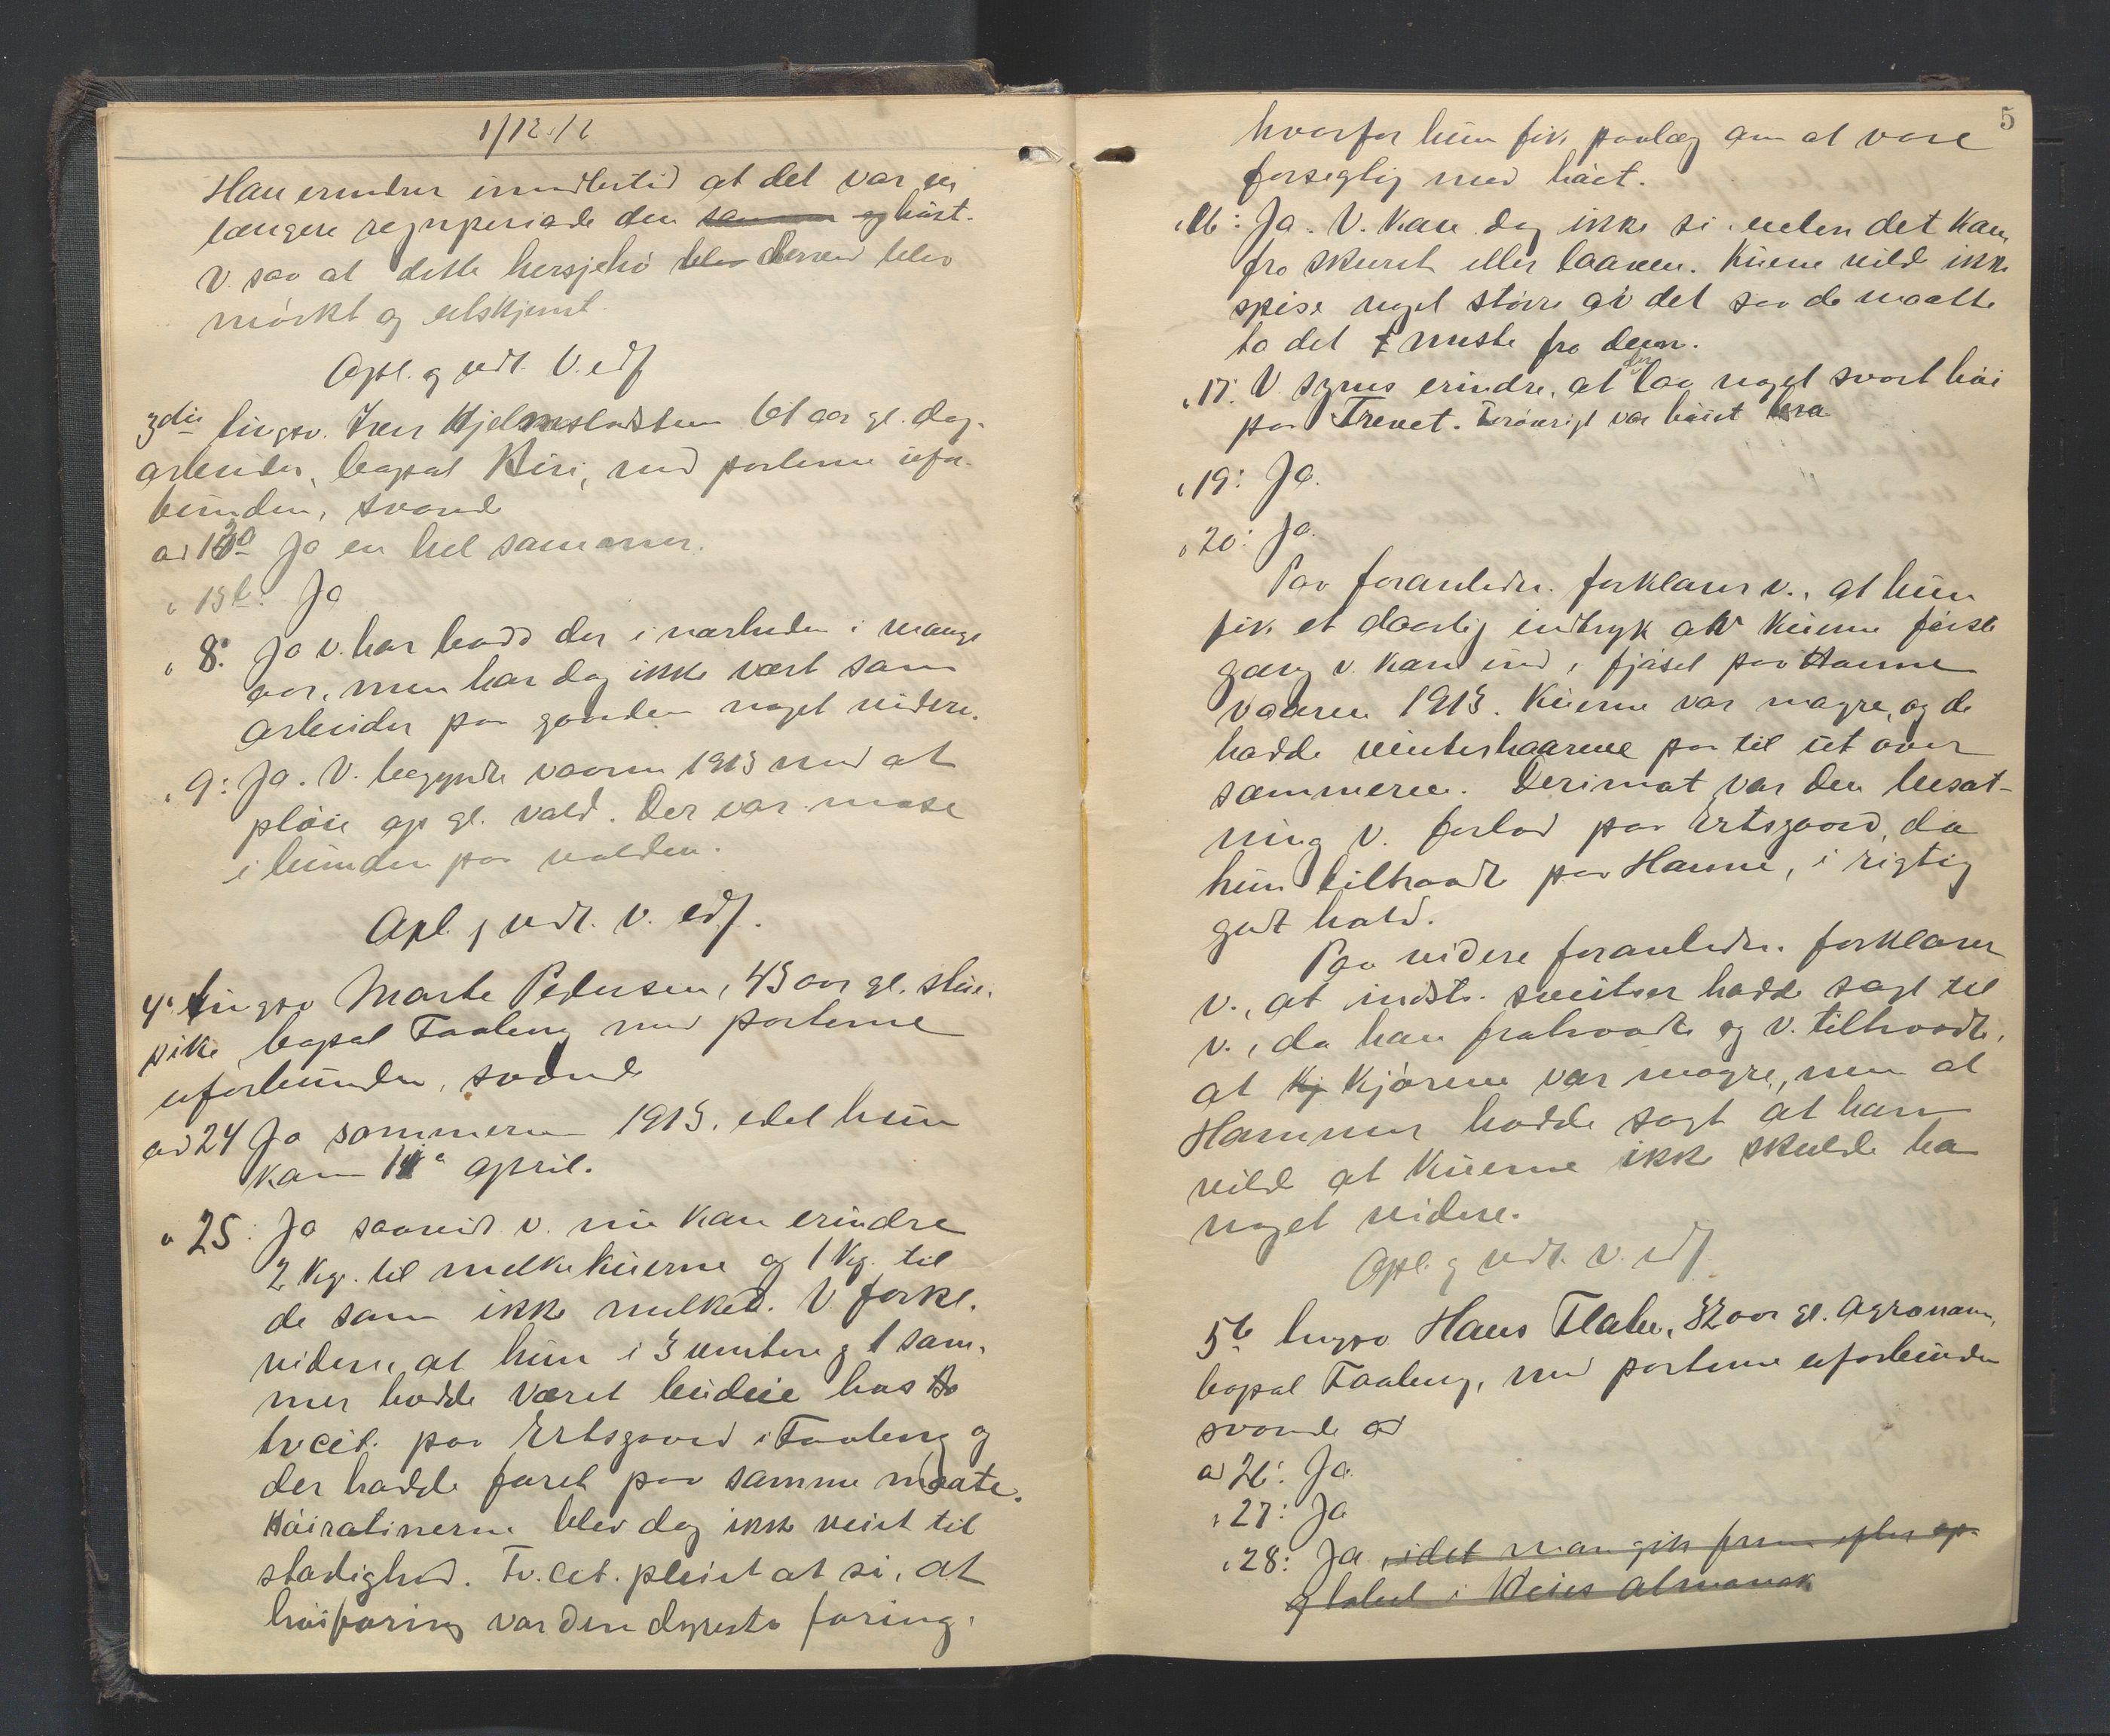 1/12 12
Han erindrer imidlertid at det var en
længere regnperiode den sommer og høst.
V. saa at dette hersjehø blev derved blev
mørkt og utskjemt.
Opl. og vedt. V. edf
3die tingsv. Iver Hjelmstadstuen 61 aar gl. dag-
arbeider, bopæl Biri, med parterne ufor-
bunden, svared
ad 13a Ja en hel sommer.
" 13b: Ja
" 8: Ja v. har bodd der i nærheden i mange
aar, men har dog ikke vært som
arbeider paa gaarden noget videre.
" 9: Ja. V. begyndte vaaren 1913 med at
pløie op gl. vold. Der var mose
i bunden paa volden.
Opl. og vedt. v. edf.
4de tingsv Marte Pedersen, 43 aar gl. stue-
pike bopæl Faaberg med parterne
uforbunden, svared
ad 24 Ja sommeren 1913, idet hun
kom 14de april.
" 25: Ja saavidt v. nu kan erindre
2 kg. til melkekuerne og 1 kg. til
de som ikke melket. V. forkl.
videre, at hun i 3 vintere og 1 som-
mer hadde været budeie hos
tv. cit. paa Ertsgaard i Faaberg og
der hadde foret paa samme maate.
Høirationerne blev dog ikke veiet til
stadighed. Tv. cit. pleiet at si, at
høiforing var den dyreste foring,
5
hvorfor hun fik paalæg om at være
forsigtig med høiet.
" 16: Ja. V. kan dog ikke si enten det kom
fra skuret eller laaven. Kuerne vilde ikke
spise noget større av det saa de maatte
ta det meste fra dem.
" 17: V synes erindre, at der laa noget svart høi
paa Trevet. Forøvrigt var høiet bra
" 19: Ja.
" 20: Ja.
Paa foranledn. forklarer v., at hun
fik et daarlig indtryk av kuerne første
gang v. kom ind i fjøset paa Hamne
vaaren 1913. Kuerne var magre, og de
hadde vinterhaarene paa til ut over
sommeren. Derimot var den besæt-
ning v. forlod paa Ertsgaard, da
hun tiltraadte paa Hamne, i rigtig
godt hold.
Paa videre foranledn. forklarer
v., at indst. sveitser hadde sagt til
v., da han fratraadte og v. tiltraadte,
at kj kjørene var magre, men at
Hammer hadde sagt at han
vilde at kuerne ikke skulde ha
noget videre.
Opl. og vedt. v. edf
5te tingsv Hans Flaten, 32 aar gl. Agronom,
bopæl Faaberg, med parterne uforbunden
svarede ad
ad 26: Ja
" 27: Ja
" 28: Ja, idet man gik frem efter op-
og tabel i almanak